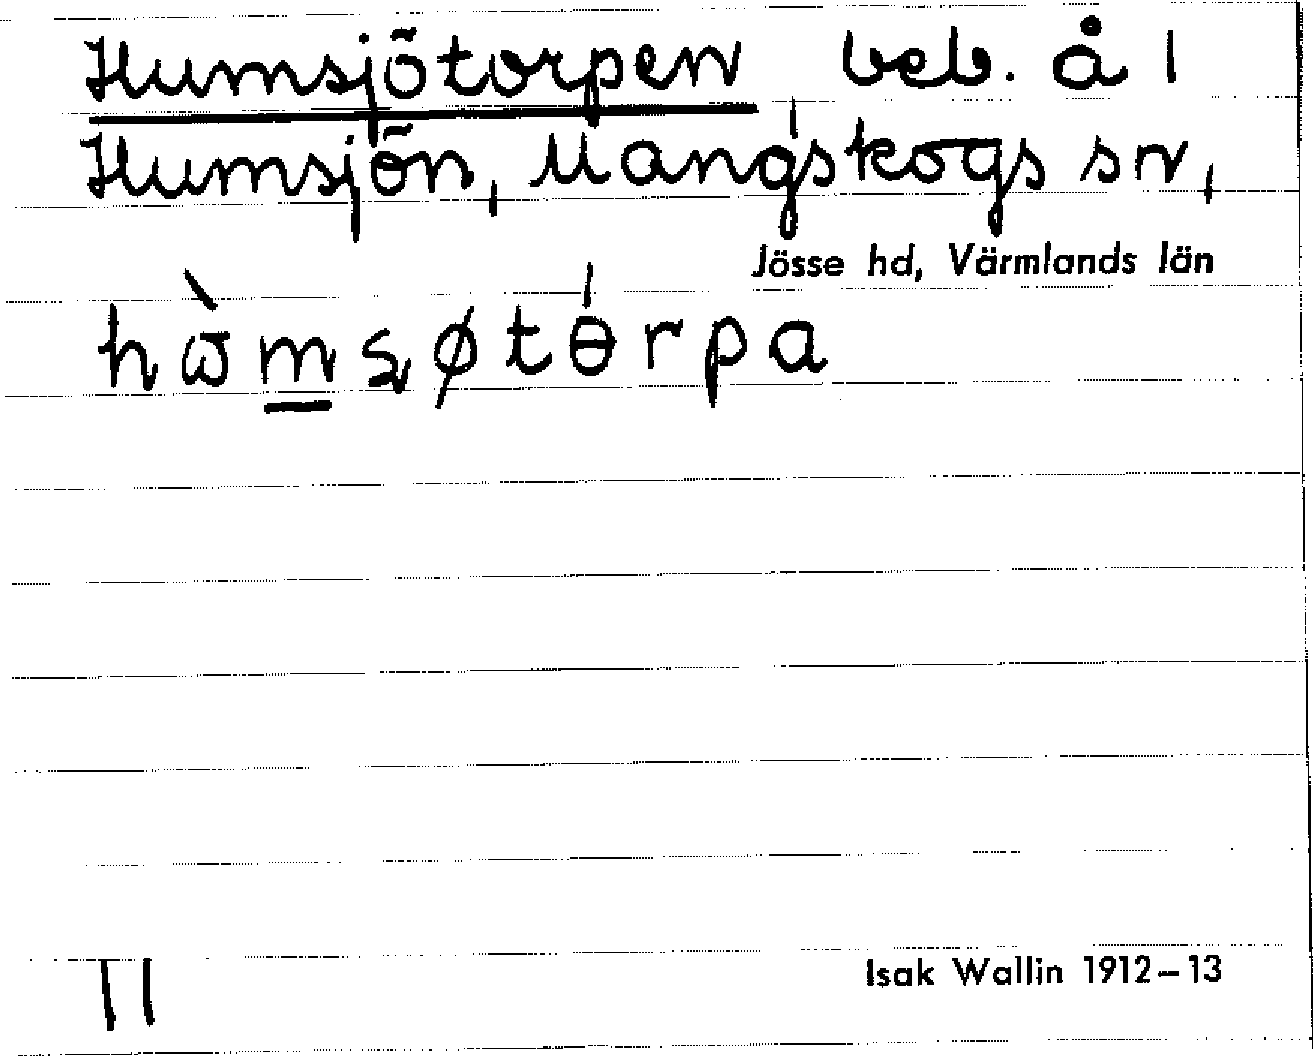 Humsjötorpen beb. å 1
Humsjön, Mangskogs sn,
Jösse hd, Värmlands län
hὼmsøtɵ́rpa
11
Isak Wallin 1912–13